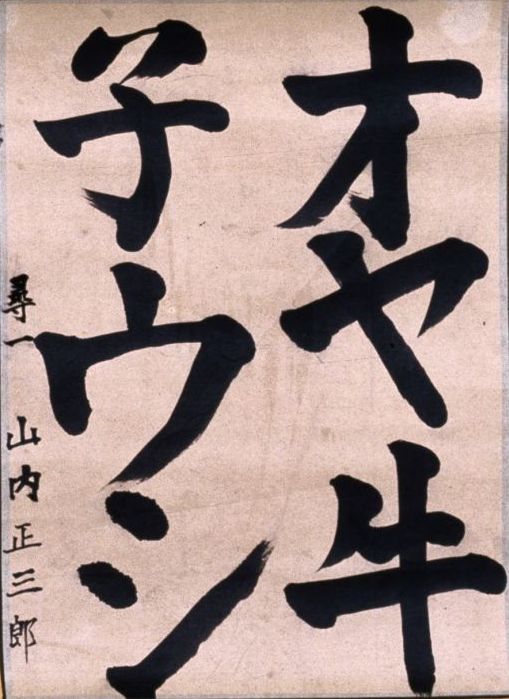 オヤ牛
子ウシ
尋一 山内正三郎